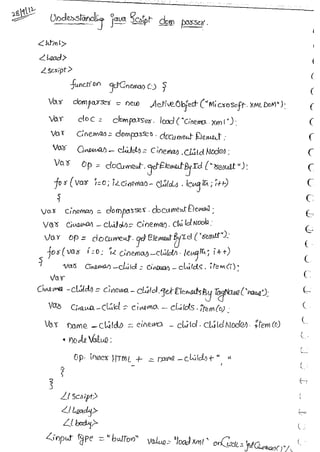 28/9/12
Understanding java Script dom parser.
<html>
<head>
<script>
function getCinemas() {
Var domparser = new ActiveObject ("Microsoft. XML DOM");
Var doc = domparser. load ("cinema xml");
Var Cinemas = domparser. document Element;
Var Cinemas - childs = Cinemas. Child Nodes;
Var op = document. get Element By Id ("result");
for (var i=0; i< cinemas - childs. length; i++)
{
var cinemas = domparser. document Element;
Var Cinemas - childs = Cinemas. Child Node;
Var op = document. get Element By Id ("result");
for (var i=0; i< cinemas - childs. length; i++)
{ var cinemas - child = cinemas - childs. item(i);
var
Cinema - childs = cinema - child. get Elements By TagName ("name");
Var Cinema - child = cinema - childs. item(0);
Var name - childs = cinema - child. Child Nodes. item(0)
. node Value;
op. inner HTML + = name - childs + "
}
}
</script>
</head>
</body>
<input type = "button" value= "load xml"